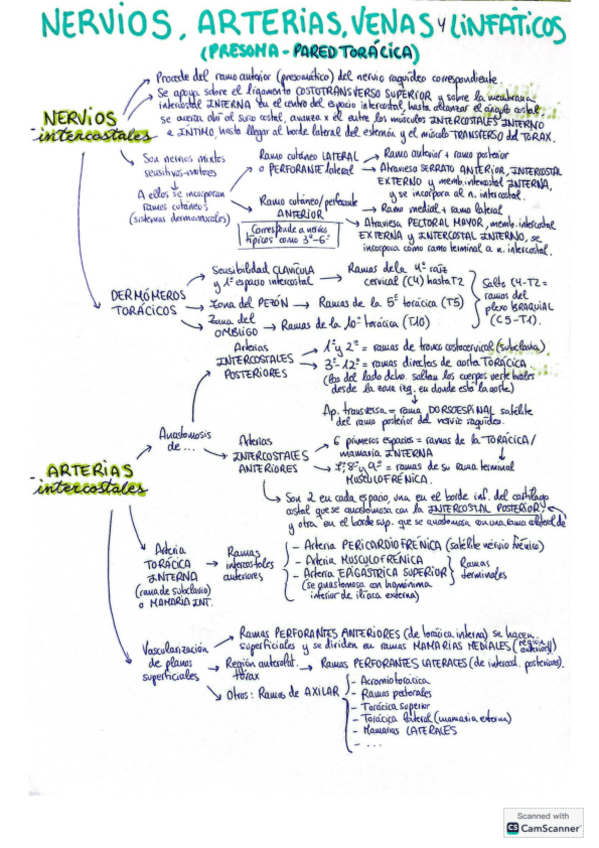 NERVIOS, ARTERIAS, VENAS y LINFÁTICOS
(PRESOMA - PARED TORÁCICA)
NERVIOS
intercostales
Procede del ramo anterior (presomático) del nervio raquídeo correspondiente.
Se apoya sobre el ligamento COSTOTRANSVERSO SUPERIOR y sobre la membrana
intercostal INTERNA en el centro del espacio intercostal, hasta alcanzar el ángulo costal.
Se acerca ahí al surco costal, avanza x él entre los músculos INTERCOSTALES INTERNO
e ÍNTIMO, hasta llegar al borde lateral del esternón y el músculo TRANSVERSO del TÓRAX.
Son nervios mixtos
sensitivos-motores
A ellos se incorporan
ramos cutáneos
Ramo cutáneo LATERAL
o PERFORANTE lateral
Ramo anterior + ramo posterior
Atraviesa SERRATO ANTERIOR, INTERCOSTAL
EXTERNO y memb. intercostal INTERNA,
y se incorpora al n. intercostal.
Ramo cutáneo/perforante
ANTERIOR
Corresponde a nervios
típicos como 3º-6º
Ramo medial + ramo lateral
Atraviesa PECTORAL MAYOR, memb. intercostal
EXTERNA y INTERCOSTAL INTERNO, se
incorpora como ramo terminal a n. intercostal.
DERMÓMEROS
TORÁCICOS
Sensibilidad CLAVÍCULA
y 1º espacio intercostal
Ramas de la 4ª raíz
cervical (C4) hasta T2
Salto C4-T2 =
ramos del
plexo BRAQUIAL
(C5-T1).
Zona del PEZÓN
Ramos de la 5ª torácica (T5)
Zona del
OMBLIGO
Ramos de la 10ª torácica (T10)
ARTERIAS
intercostales
Anastomosis
de ...
Arterias
INTERCOSTALES
POSTERIORES
1ª y 2ª = ramas de tronco costocervical (subclavia)
3ª-12ª = ramas directas de aorta TORÁCICA.
(las del lado dcho. saltan los cuerpos vertebrales
desde la zona izq. en donde está la aorta)
Ap. transversa = rama DORSOESPINAL satélite
del ramo posterior del nervio raquídeo.
Arterias
INTERCOSTALES
ANTERIORES
6 primeros espacios = ramas de la TORÁCICA/
mamaria INTERNA
7º, 8º y 9º = ramas de su rama terminal
MUSCULOFRÉNICA.
Son 2 en cada espacio, una en el borde inf. del cartílago
costal que se anastomosa con la INTERCOSTAL POSTERIOR y
otra en el borde sup. que se anastomosa con una rama de
Arteria
TORÁCICA
INTERNA
(rama de subclavia)
o MAMARIA INT.
Ramas
intercostales
anteriores
- Arteria PERICARDIOFRÉNICA (satélite nervio frénico)
- Arteria MUSCULOFRÉNICA
- Arteria EPIGÁSTRICA SUPERIOR
(se anastomosa con homónima
inferior de ilíaca externa)
Ramas
terminales
Vascularización
de planos
superficiales
Ramas PERFORANTES ANTERIORES (de torácica interna) se hacen
superficiales y se dividen en ramas MAMARIAS MEDIALES (región
anterior)
Región anterolat.
tórax
Ramas PERFORANTES LATERALES (de intercost. posteriores).
Otros: Ramas de AXILAR
- Acromiotorácica
- Ramas pectorales
- Torácica superior
- Torácica lateral (mamaria externa)
- Mamarias LATERALES
- ...
Scanned with
CS CamScanner